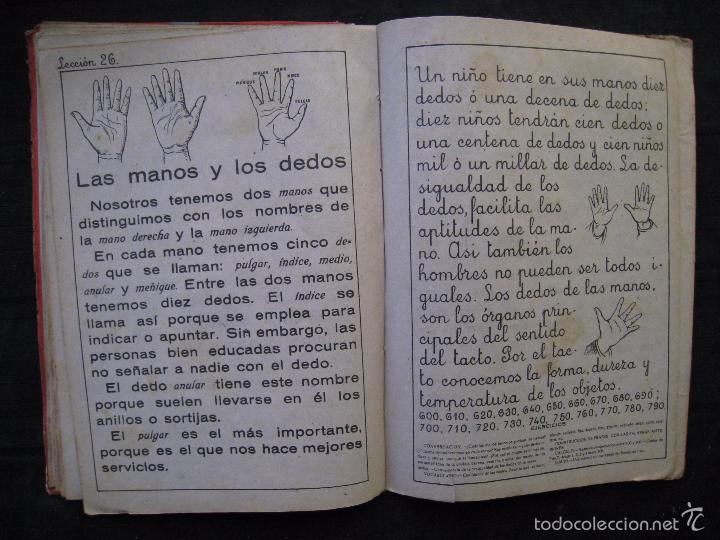 Lección 26.
MEÑIQUE
ANULAR
MEDIO
INDICE
PULGAR
Las manos y los dedos
Nosotros tenemos dos manos que
distinguimos con los nombres de
la mano derecha y la mano izquierda.
En cada mano tenemos cinco de-
dos que se llaman: pulgar, índice, medio,
anular y meñique. Entre las dos manos
tenemos diez dedos. El índice se
llama así porque se emplea para
indicar o apuntar. Sin embargo, las
personas bien educadas procuran
no señalar a nadie con el dedo.
El dedo anular tiene este nombre
porque suelen llevarse en él los
anillos o sortijas.
El pulgar es el más importante,
porque es el que nos hace mejores
servicios.
Un niño tiene en sus manos diez
dedos ó una decena de dedos;
diez niños tendrán cien dedos o
una centena de dedos y cien niños
mil ó un millar de dedos. La de-
sigualdad de los
dedos, facilita las
aptitudes de la ma-
no. Asi también los
hombres no pueden ser todos i-
guales. Los dedos de las manos,
son los órganos prin-
cipales del sentido
del tacto. Por el tac-
to conocemos la forma, dureza y
temperatura de los objetos.
600, 610, 620, 630, 640, 650, 660, 670, 680, 690;
700, 710, 720, 730, 740, 750, 760, 770, 780, 790.
EJERCICIOS
todocoleccion.net
© todocoleccion.net